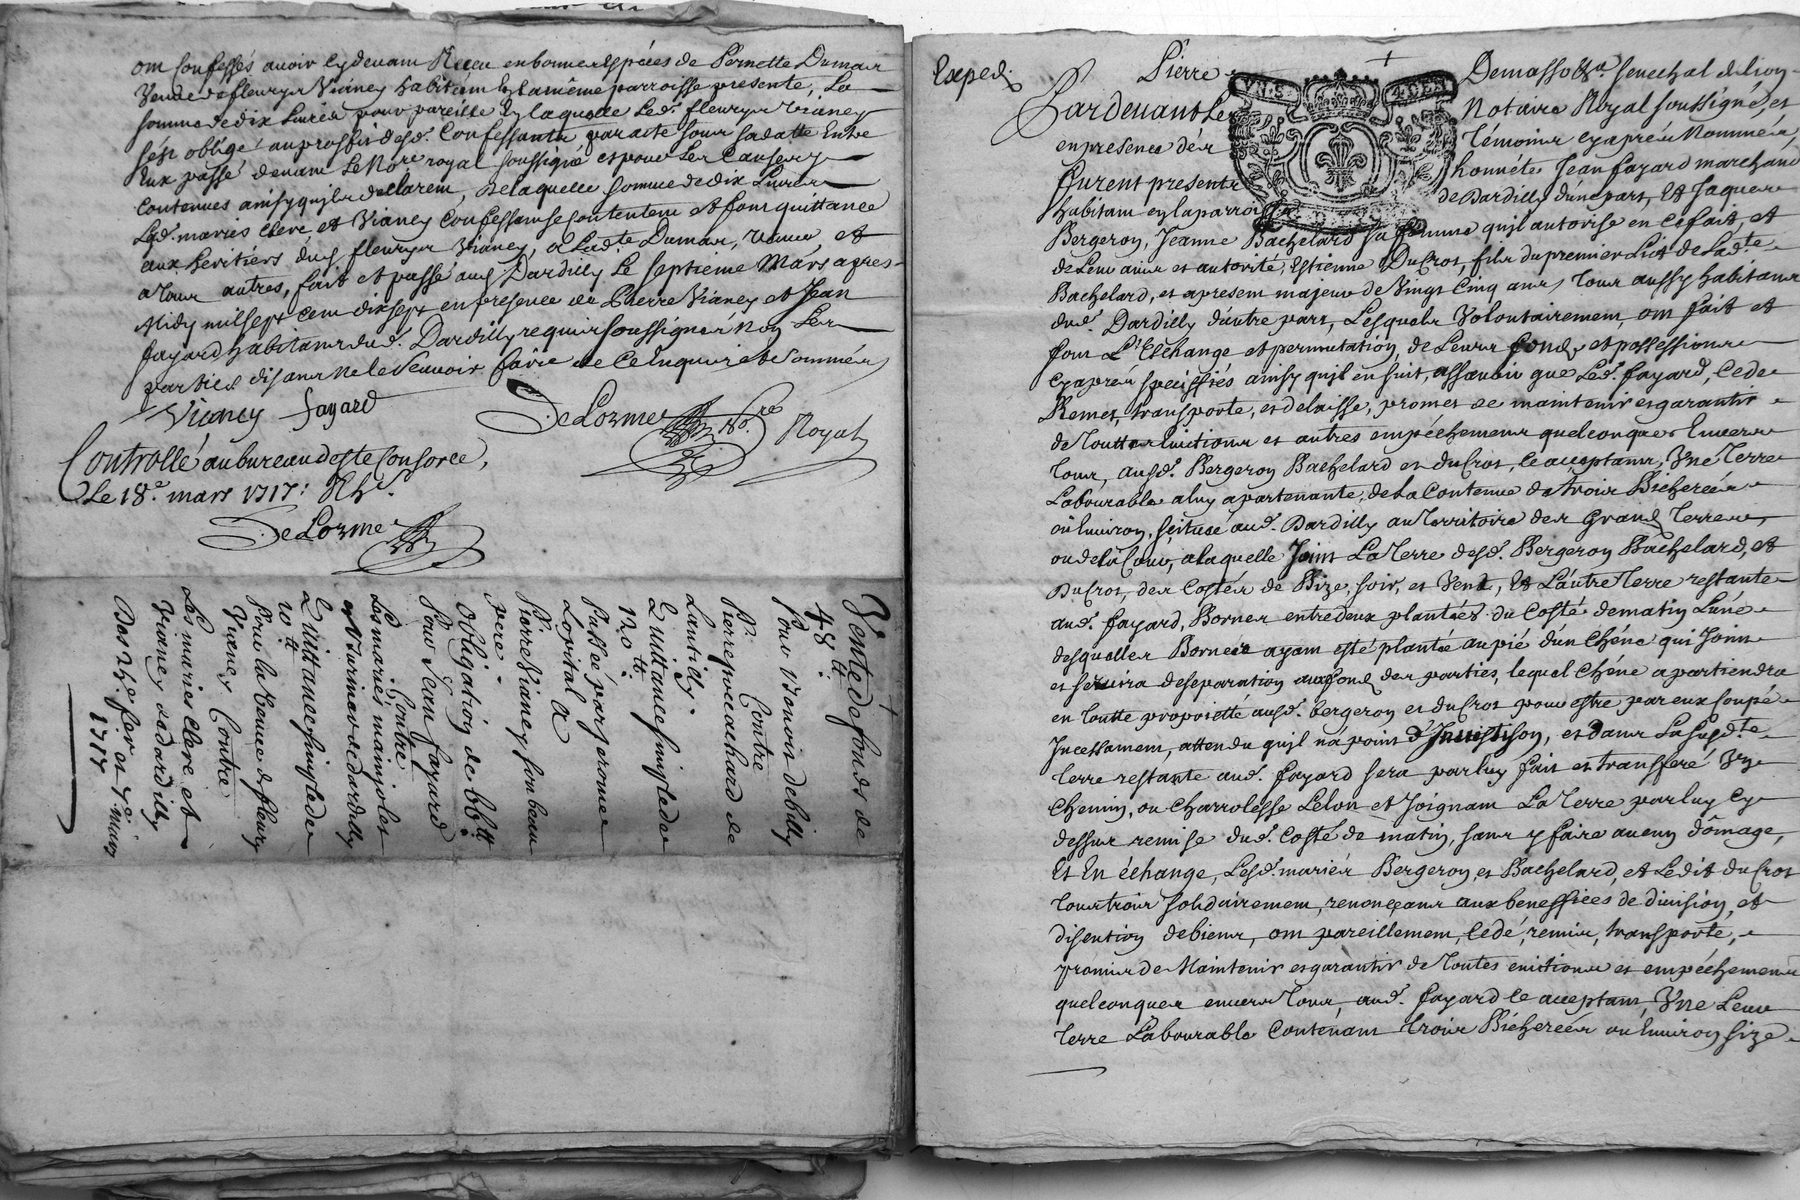 ont Confessés avoir Cydevant Receu en bonnes Espéces de Pernette Dumas
Veuve de fleury Vianey habitant En la même parroisse presente, La
somme de dix Livres pour pareille En laquelle Led. fleury Vianey
s'est obligé au proffit desd. Confessants par acte sous sa datte Entre
Eux passé devant Le No.re royal soussigné et pour Les Causes y
Contenues ainsy quils declarent, De laquelle somme de dix Livres
Lesd. mariés Clere et Vianey Confessants se contentent et font quittance
aux heritiers dud. fleury Vianey, a Lad.te Dumas, veuve, et
a tous autres, fait et passé aud. Dardilly Le septieme Mars apres
Midy mil sept cent dix sept en presence de Pierre Vianey et Jean
fayard habitants dud. Dardilly requis soussignés Non Les
parties disant ne le scavoir faire de ce Enquis et Sommés
Vianey fayard DeLorme No.re Royal
Controllé au bureau de ste Consorce,
Le 18.e mars 1717:
DeLorme
Vente de fonds de
48 tt.
Pour Benoist debilly
Contre
Pierre pecachard de
Lantilly.
Quittance simple de
120 tt.
Passée par jerome
Lospital a
Pierre Vianey son beau
pere.
Obligation de 66 tt.
Pour Jean fayard
Contre
Les mariés mainjolet
et Turin de dardilly
Quittance simple de
10 tt
Pour la Veuve de fleury
Vianey Contre
Les mariés Clere et
Vianey de dardilly
Des 24.e fer. et 7.e mars
1717
Exped.
Pierre Demasso &.a senechal de lion
Pardevant Le Notaire Royal soussigné, et
en presence des Témoins cyaprés Nommés,
furent presents honnéte Jean fayard marchand
habitant en la parroisse de Dardilly d'une part, Et Jaques
Bergeron, Jeanne Bachelard sa femme quil autorise en Ce fait, et
de Leur avis et autorité, Estienne DuCrot, fils du premier Lict de Lad.te
Bachelard, et apresent majeur de Vingt Cinq ans, tous aussy habitants
dud. Dardilly d'autre part, Lesquels Volontairement, ont fait et
font L'Echange et permutation, de Leurs fonds et possessions
cyaprés speciffiés ainsy quil en suit, assavoir que Led. fayard, Cede
Remet, transporte, et delaisse, promet de maintenir et garantir
de Touttes Evictions et autres empéchements quelconques Envers
tous, ausd. Bergeron Bachelard et duCrot, ce acceptants, Une Terre
Labourable a luy apartenante, de la Contenue de trois Bicherées
ou Environ, scituée aud. Dardilly au Territoire des Grand Terres,
ou de la Cour, a laquelle Joint La Terre desd. Bergeron Bachelard, et
DuCrot, des Costés de Bize, soir, et Vent, Et L'autre Terre restante
aud. fayard, Bornes entre deux plantées du Costé de matin L'une
desquelles Bornes ayant esté plantée au pié d'un Chéne qui Joint
et servira de separation aux fonds des parties, lequel Chéne apartiendra
en toutte proprietté ausd. bergeron et duCrot pour estre par eux Coupé
Incessament, attendu quil n'a point d'Jnvistison, et dans La susd.te
terre restante aud. fayard sera par luy fait et transferé Un
Chemin, ou Charrolesse Lelon et Joignant La Terre par luy cy
dessus remise dud. Costé de matin, sans y faire aucun dômage,
Et En échange, Lesd. mariés Bergeron, et Bachelard, et Ledit duCrot
tous trois solidairement, renonçant aux beneffices de division, et
disention de biens, ont pareillement, Cedé, remis, transporté,
promis de Maintenir et garantir de toutes evictions et empéchements
quelconques envers tous, aud. fayard ce acceptant, Une Leur
Terre Labourable Contenant trois Bicherées ou Environ size